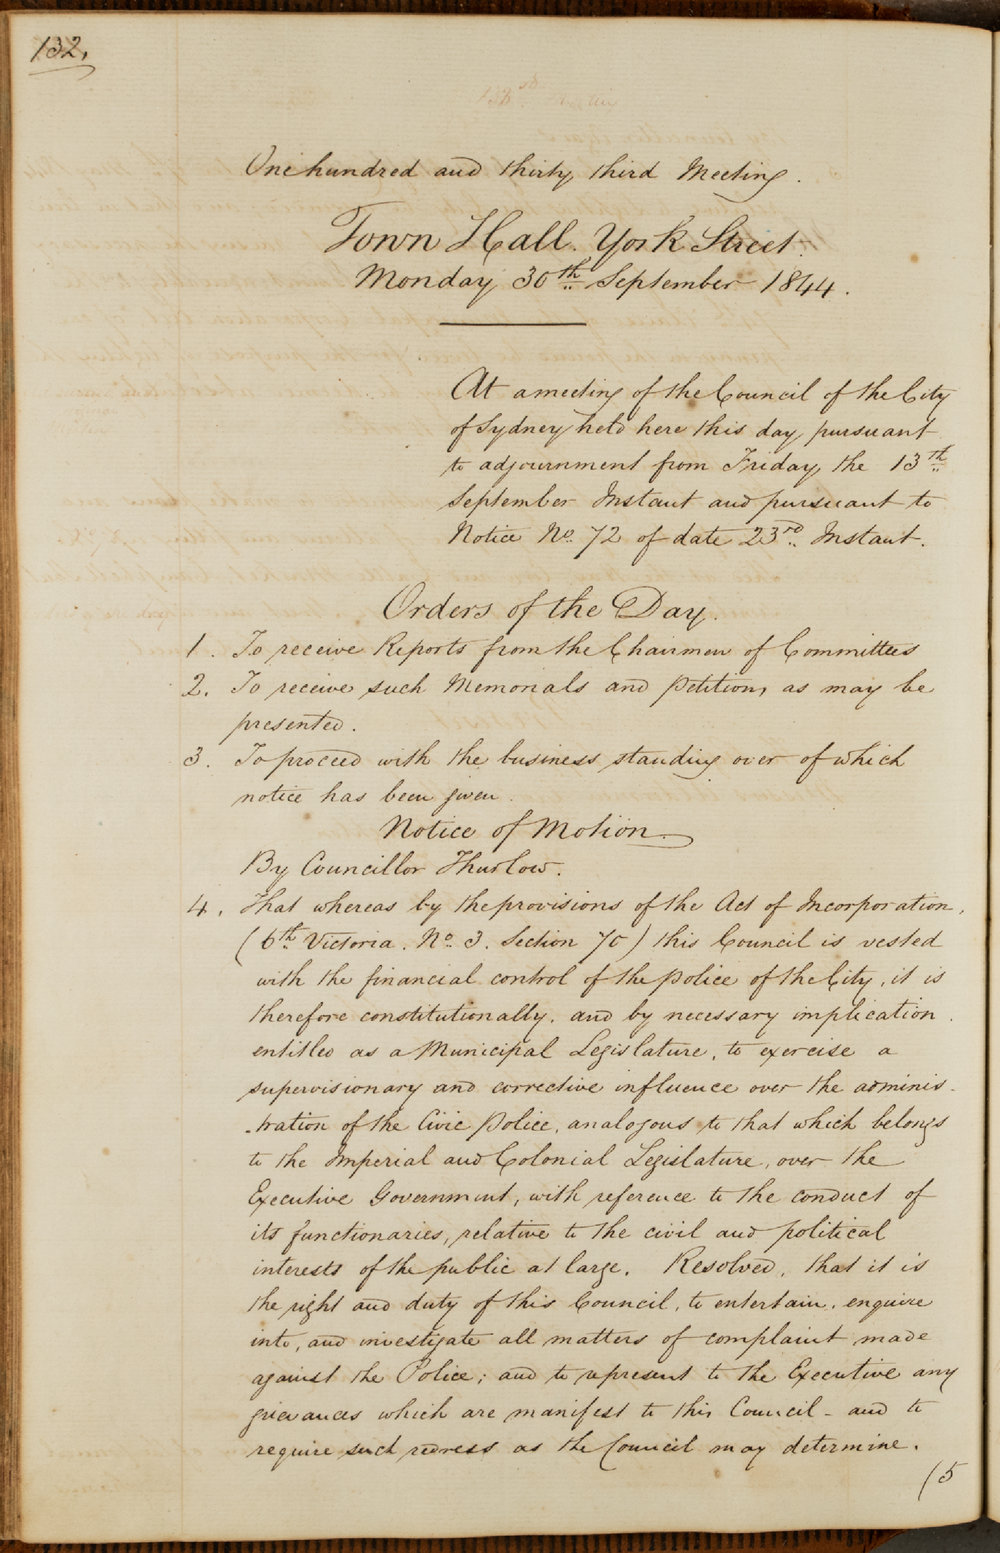 132.
One hundred and thirty third Meeting.
Town Hall. York Street.
Monday 30th September 1844.
At a meeting of the Council of the City
of Sydney held here this day, pursuant
to adjournment from Friday, the 13th
September Instant and pursuant to
Notice No. 72 of date 23rd Instant.
Orders of the Day.
1. To receive Reports from the Chairmen of Committees
2. To receive such Memorials and Petitions as may be
presented.
3. To proceed with the business standing over of which
notice has been given.
Notice of Motion.
By Councillor Thurlow.
4. That whereas by the provisions of the Act of Incorporation,
(6th Victoria. No. 3. Section 70) this Council is vested
with the financial control of the police of the City, it is
therefore constitutionally, and by necessary implication.
entitled as a Municipal Legislature, to exercise a
supervisionary and corrective influence over the adminis-
-tration of the Civic Police, analogous to that which belongs
to the Imperial and Colonial Legislature, over the
Executive Government, with reference to the conduct of
its functionaries, relative to the civil and political
interests of the public at large. Resolved, that it is
the right and duty of this Council, to entertain, enquire
into, and investigate all matters of complaint made
against the Police; and to represent to the Executive any
grievances which are manifest to this Council - and to
require such redress as the Council may determine.
(5